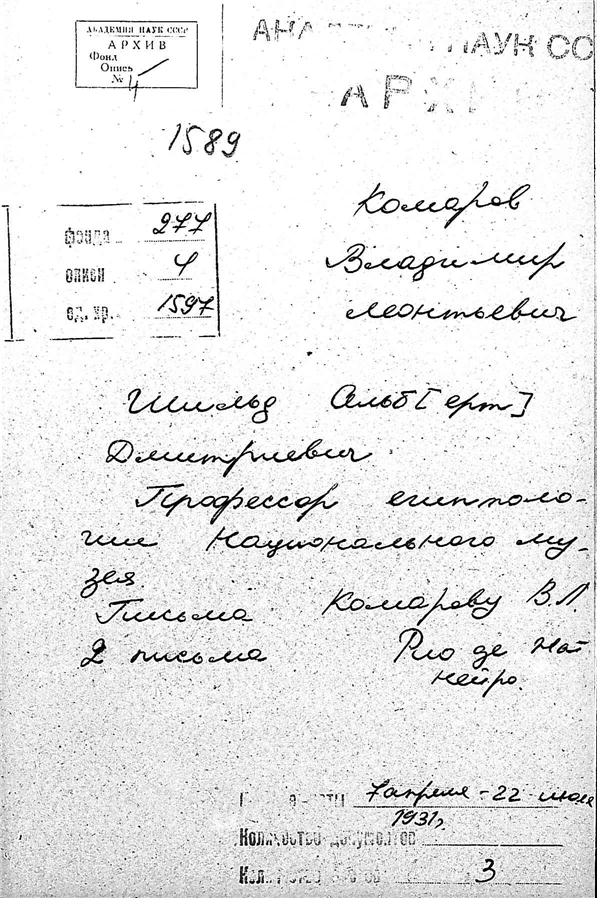 АКАДЕМИЯ НАУК СССР
АРХИВ
Фонд
Опись
№ 4
НАУК СС
АРХИ
1589
фонда 277
описи 4
ед. хр. 1597
Комаров
Владимир
Леонтьевич
Шильд Альб[ерт]
Дмитриевич
Профессор египтоло-
гии Национального му-
зея
Письма Комарову В.Л.
2 письма Рио де
нейро.
7 апреля - 22 июля
1931г.
Количество документов
3